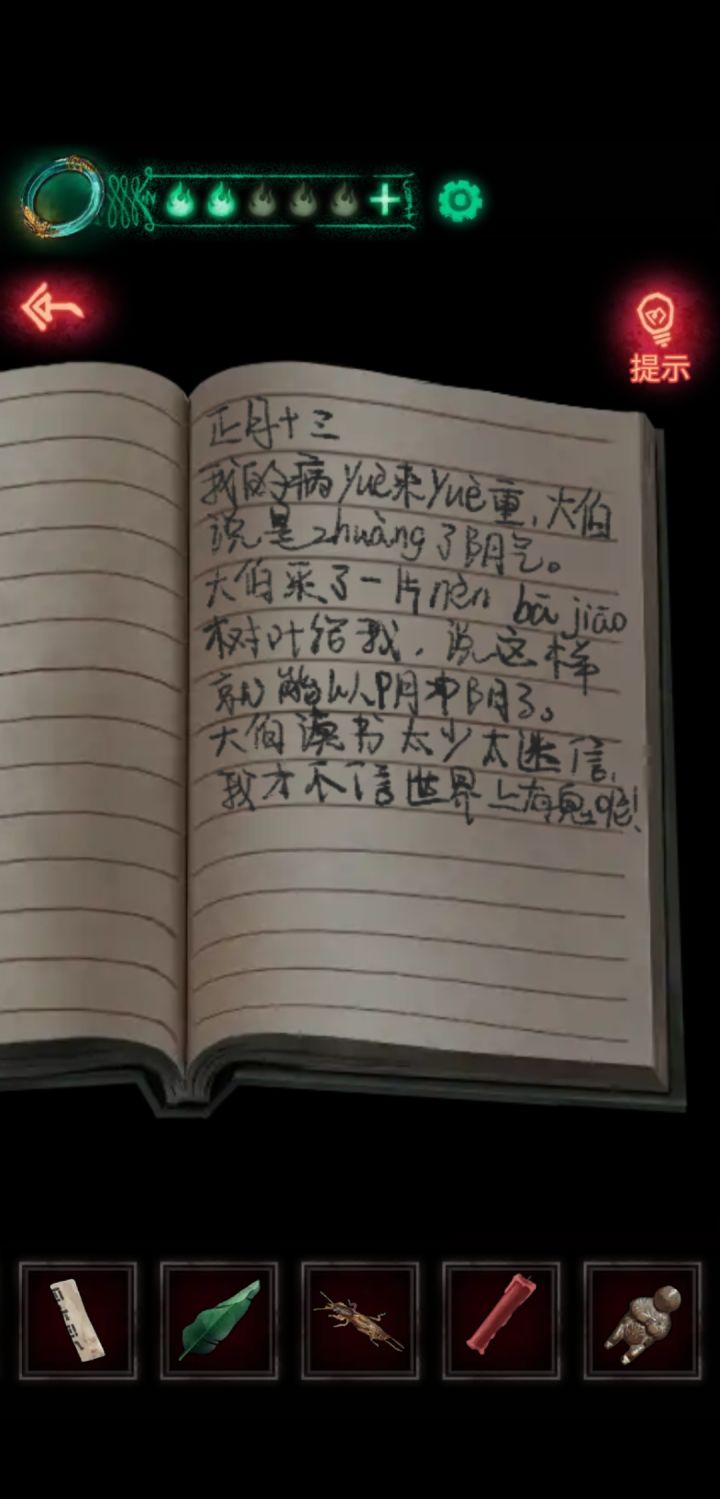 提示
正月十三
我的病yuè来yuè重,大伯
说是zhuàng了阴气。
大伯采了一片nèn bā jiāo
树叶给我,说这样
就能以阴冲阴了。
大伯读书太少太迷信,
我才不信世界上有鬼呢!